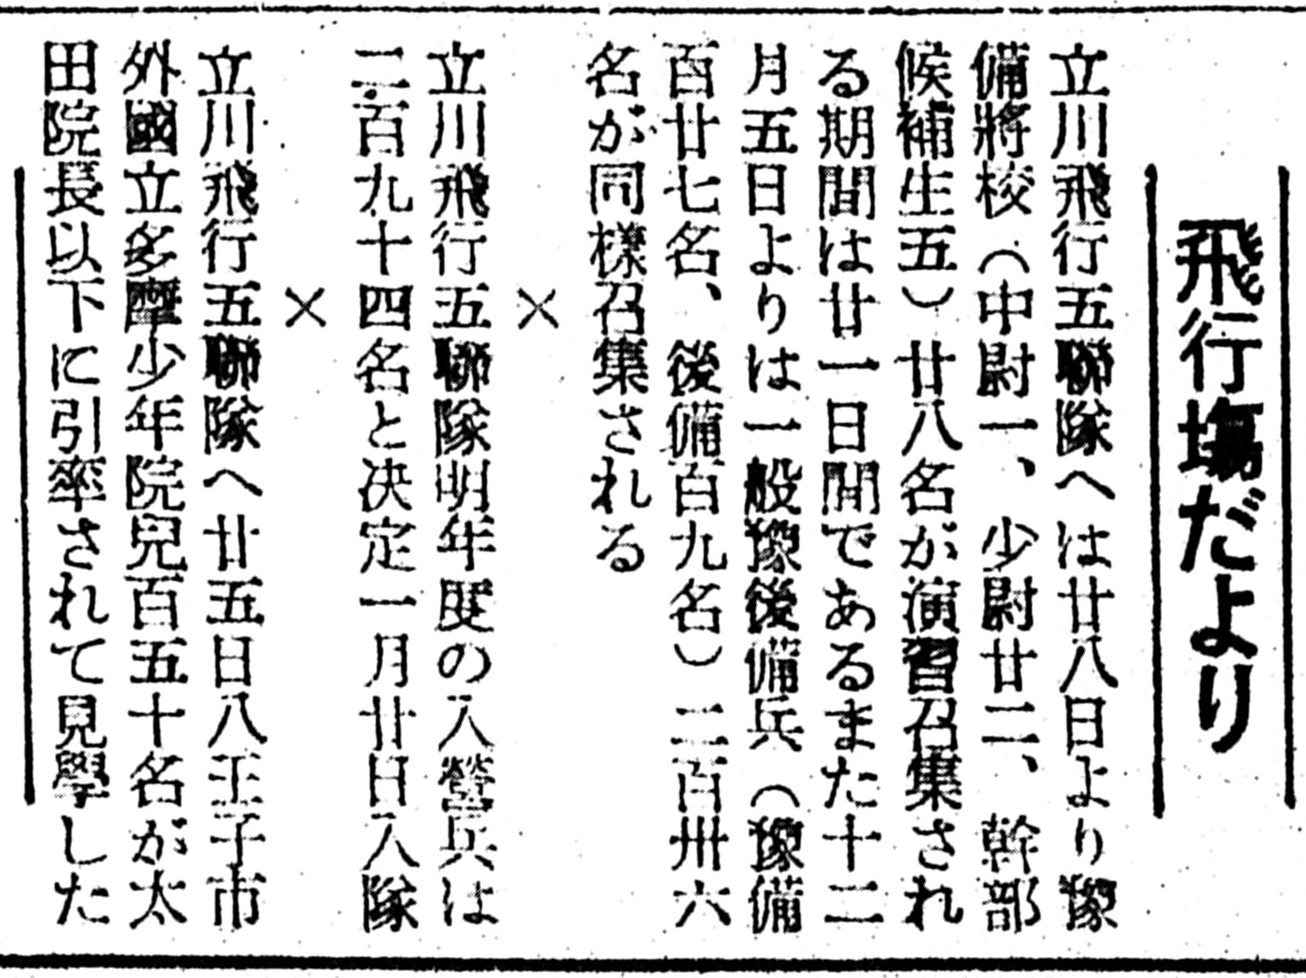 飛行場だより
立川飛行五聯隊へは廿八日より豫
備將校（中尉一、少尉廿二、幹部
候補生五）廿八名が演習召集され
る期間は廿一日間であるまた十二
月五日よりは一般豫後備兵（豫備
百廿七名、後備百九名）二百卅六
名が同樣召集される
×
立川飛行五聯隊明年度の入營兵は
二百九十四名と决定一月廿日入隊
×
立川飛行五聯隊へ廿五日八王子市
外國立多摩少年院兒百五十名が太
田院長以下に引率されて見學した